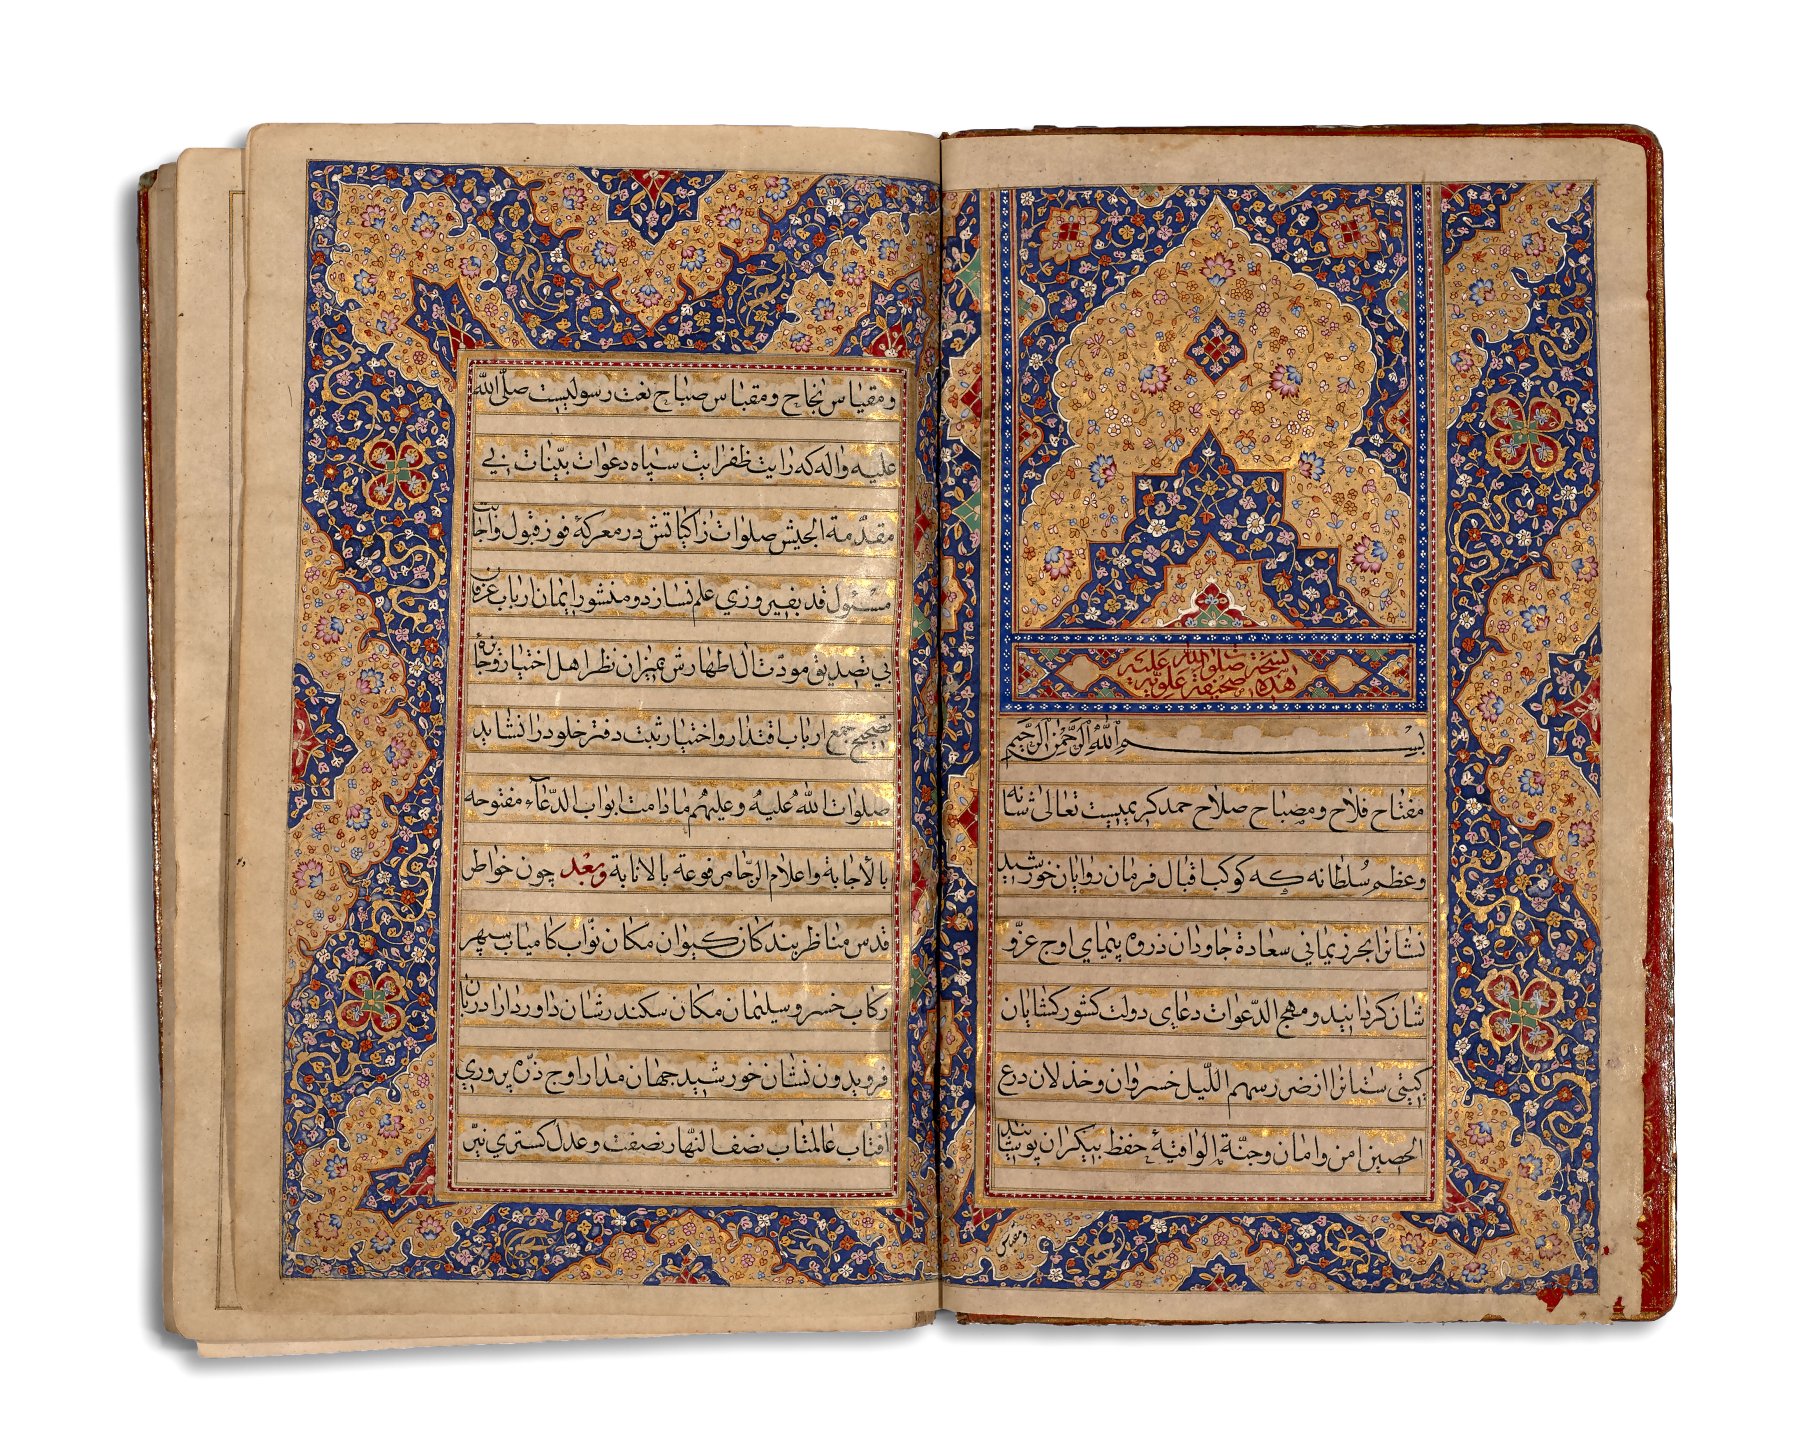 هذه نسخة صحیفة علویّه صلوات الله علیه
بسم الله الرحمن الرحیم
مفتاح فلاح و مصباح صلاح حمد کریمیست تعالیٰ شانه
وعظم سُلطانه که کوکب اقبال فرمان روایان خورشید
نشانرا بحرزیمانی سعادة جاودان ذروه پیمای اوج عزّو
شان کردانید و مهج الدّعوات دعای دولت کشور کشایان
کیتی ستانرا از ضر رسهم اللّیل خسروان و خذلان درع
الحصین امن وامان وجنّة الواقیهٔ حفظ بیکران پوشانید
ومقیاس
ومقیاس نجاح ومقباس صباح نعت رسولیست صلّی الله
علیه واله که رایت ظفرایت سپاه دعوات بیّنات بی
مقدّمة الجیش صلوات زاکیاتش در معرکهٔ فوز قبول واجابت
مسئول قد بفیروزی علم نسازد و منشور ایمان ارباب عرفان
بی تصدیق مودّت ال اطهارش بمیزان نظر اهل اختیار و جائزهٔ
تصحیح جمع ارباب اقتدار و اختیار ثبت دفتر خلود را نشاید
صلوات الله علیه وعلیهم مادامت ابواب الدّعاء مفتوحه
بالاجابة واعلام الرّجا مرفوعة بالانابة وبعد چون خواطر
قدس مناظر بندکان کیوان مکان نوّاب کامیاب سپهر
رکاب خسرو سلیمان مکان سکندر شان داور دارا دربان
فریدون نشان خورشید جهان مدار اوج ذرّه پروری
افتاب عالمتاب نصف النهار نصفت وعدل کستری نیّر